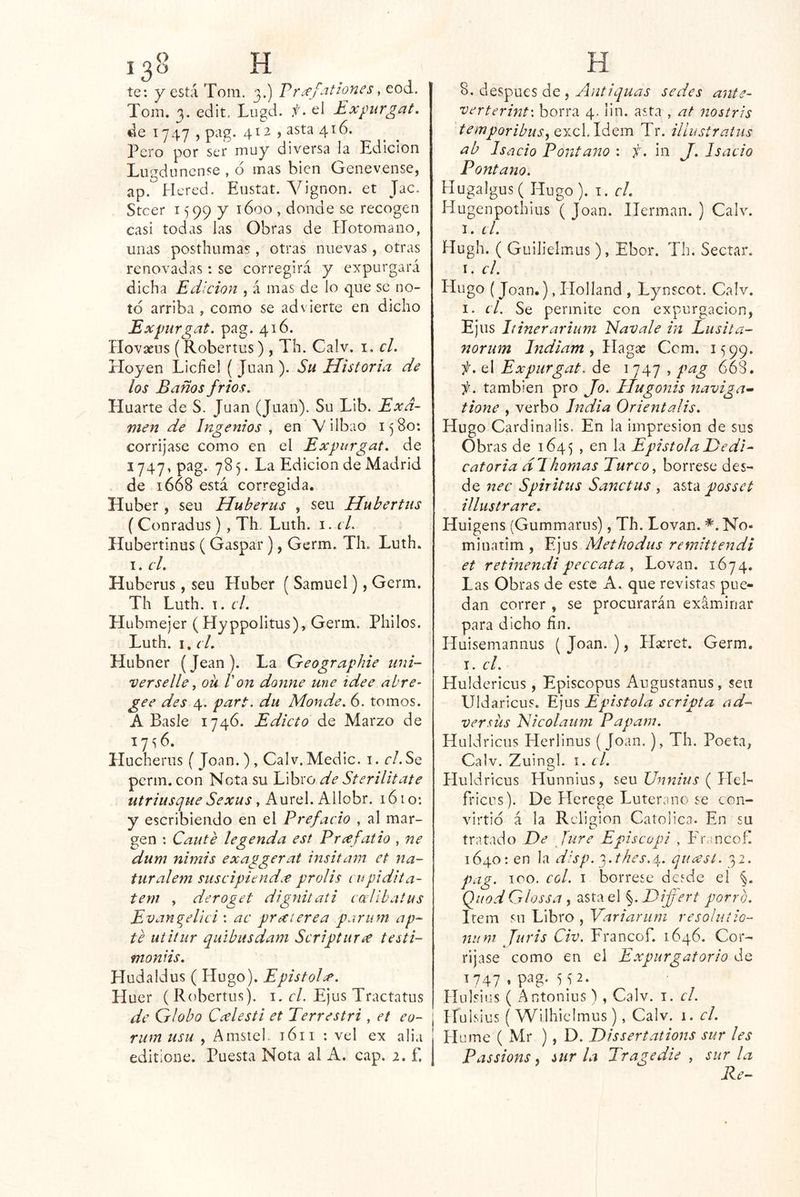 138 H
te: y está Tom. 3.) Præfationes, eod.
Tom. 3. edit. Lugd. ℣. el Expurgat.
de 1747, pag. 412, asta 416.
Pero por ser muy diversa la Edicion
Lugdunense, ó mas bien Genevense,
ap. Hered. Eustat. Vignon. et Jac.
Stcer 1599 y 1600, donde se recogen
casi todas las Obras de Hotomano,
unas posthumas, otras nuevas, otras
renovadas: se corregirá y expurgará
dicha Edicion, á mas de lo que se no-
tó arriba, como se advierte en dicho
Expurgat. pag. 416.
Hovæus (Robertus), Th. Calv. 1. cl.
Hoyen Licfiel (Juan). Su Historia de
los Baños frios.
Huarte de S. Juan (Juan). Su Lib. Exá-
men de Ingenios, en Vilbao 1580:
corrijase como en el Expurgat. de
1747, pag. 785. La Edicion de Madrid
de 1668 está corregida.
Huber, seu Huberus, seu Hubertus
(Conradus), Th. Luth. 1. cl.
Hubertinus (Gaspar), Germ. Th. Luth.
1. cl.
Huberus, seu Huber (Samuel), Germ.
Th Luth. 1. cl.
Hubmejer (Hyppolitus), Germ. Philos.
Luth. 1. cl.
Hubner (Jean). La Geographie uni-
verselle, où l'on donne une idee abre-
gee des 4. part. du Monde. 6. tomos.
A Basle 1746. Edicto de Marzo de
1756.
Hucherus (Joan.), Calv. Medic. 1. cl. Se
perm. con Nota su Libro de Sterilitate
utriusque Sexus, Aurel. Allobr. 1610:
y escribiendo en el Prefacio, al mar-
gen: Cautè legenda est Præfatio, ne
dum nimis exaggerat insitam et na-
turalem suscipiendæ prolis cupidita-
tem, deroget dignitati cœlibatus
Evangelici: ac præterea parum ap-
tè utitur quibusdam Scripturæ testi-
moniis.
Hudaldus (Hugo). Epistolæ.
Huer (Robertus). 1. cl. Ejus Tractatus
de Globo Cælesti et Terrestri, et eo-
rum usu, Amstel. 1611: vel ex alia
editione. Puesta Nota al A. cap. 2. f.
H
8. despues de, Antiquas sedes ante-
verterint: borra 4. lin. asta, at nostris
temporibus, excl. Idem Tr. illustratus
ab Isacio Pontano: ℣. in J. Isacio
Pontano.
Hugalgus (Hugo). 1. cl.
Hugenpothius (Joan. Herman.) Calv.
1. cl.
Hugh. (Guilielmus), Ebor. Th. Sectar.
1. cl.
Hugo (Joan.), Holland, Lynscot. Calv.
1. cl. Se permite con expurgacion,
Ejus Itinerarium Navale in Lusita-
norum Indiam, Hagæ Com. 1599.
℣. el Expurgat. de 1747, pag 668.
℣. tambien pro Jo. Hugonis naviga-
tione, verbo India Orientalis.
Hugo Cardinalis. En la impresion de sus
Obras de 1645, en la Epistola Dedi-
catoria á Thomas Turco, borrese des-
de nec Spiritus Sanctus, asta posset
illustrare.
Huigens (Gummarus), Th. Lovan. *. No-
minatim, Ejus Methodus remittendi
et retinendi peccata, Lovan. 1674.
Las Obras de este A. que revistas pue-
dan correr, se procurarán exâminar
para dicho fin.
Huisemannus (Joan.), Hæret. Germ.
1. cl.
Huldericus, Episcopus Augustanus, seu
Uldaricus. Ejus Epistola scripta ad-
versùs Nicolaum Papam.
Huldricus Herlinus (Joan.), Th. Poeta,
Calv. Zuingl. 1. cl.
Huldricus Hunnius, seu Unnius (Hel-
fricus). De Herege Luterano se con-
virtió á la Religion Catolica. En su
tratado De Jure Episcopi, Francof.
1640: en la disp. 3. thes. 4. quæst. 32.
pag. 100. col. 1 borrese desde el §.
Quod Glossa, asta el §. Differt porrò.
Item su Libro, Variarum resolutio-
num Juris Civ. Francof. 1646. Cor-
rijase como en el Expurgatorio de
1747, pag. 552.
Hulsius (Antonius), Calv. 1. cl.
Hulsius (Wilhielmus), Calv. 1. cl.
Hume (Mr), D. Dissertations sur les
Passions, sur la Tragedie, sur la
Re-